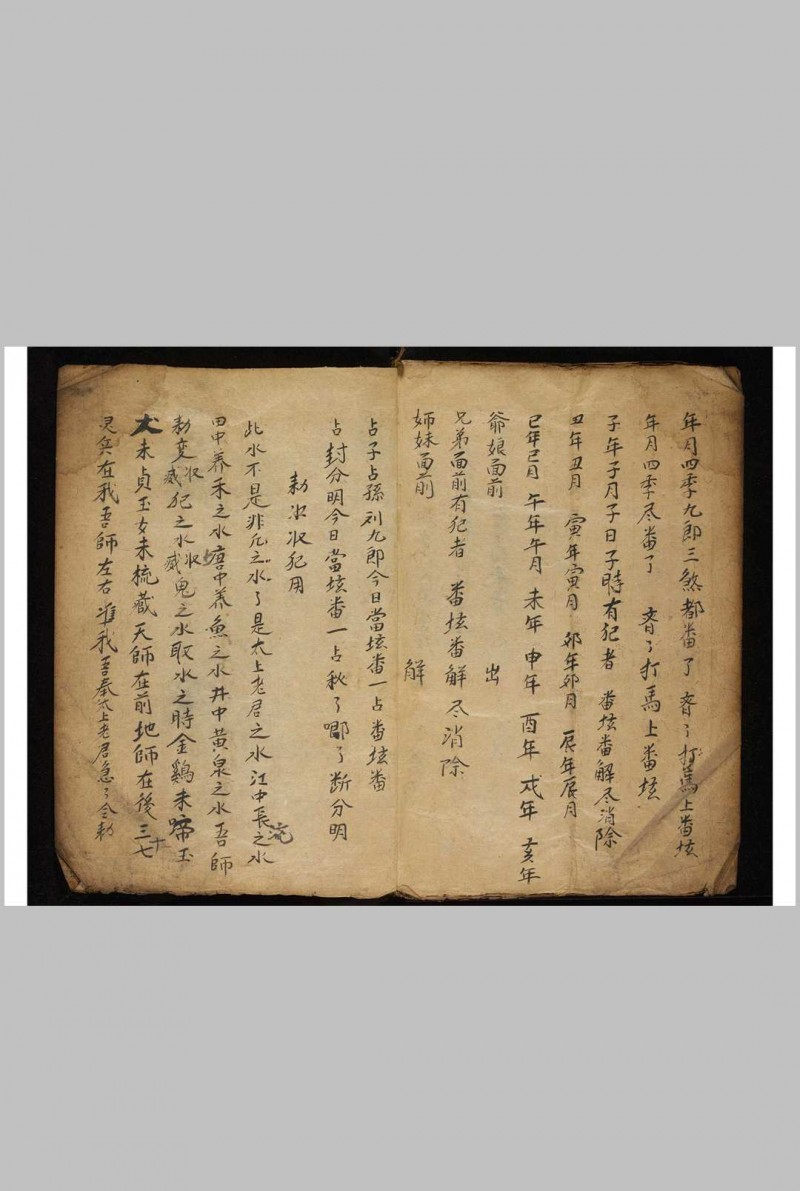 年月四季九郎三煞都番了 齐々打馬上番垓
年月四季尽番了 齐了打馬上番垓
子年子月子日子時有犯者 番垓番解尽消除
丑年丑月 寅年寅月 卯年卯月 辰年辰月
巳年巳月 午年午月 未年 申年 酉年 戌年 亥年
爺娘面前 出
兄弟面前有犯者 番垓番解尽消除
姉妹面前 解
占子占孫到九郎今日當垓番一占番垓番
占封分明今日當垓番一占秋了唧了断分明
勅水收犯用
此水不是非凡之水々是太上老君之水江中長流之水
田中养禾之水塘中养魚之水井中黄泉之水吾師
勅变收威犯之水收威鬼之水取水之時金鷄未啼玉
犬未貞玉女未梳藏天師在前地師在後三十七
灵兵在我吾師左右准我吾奉太上老君急々令勅